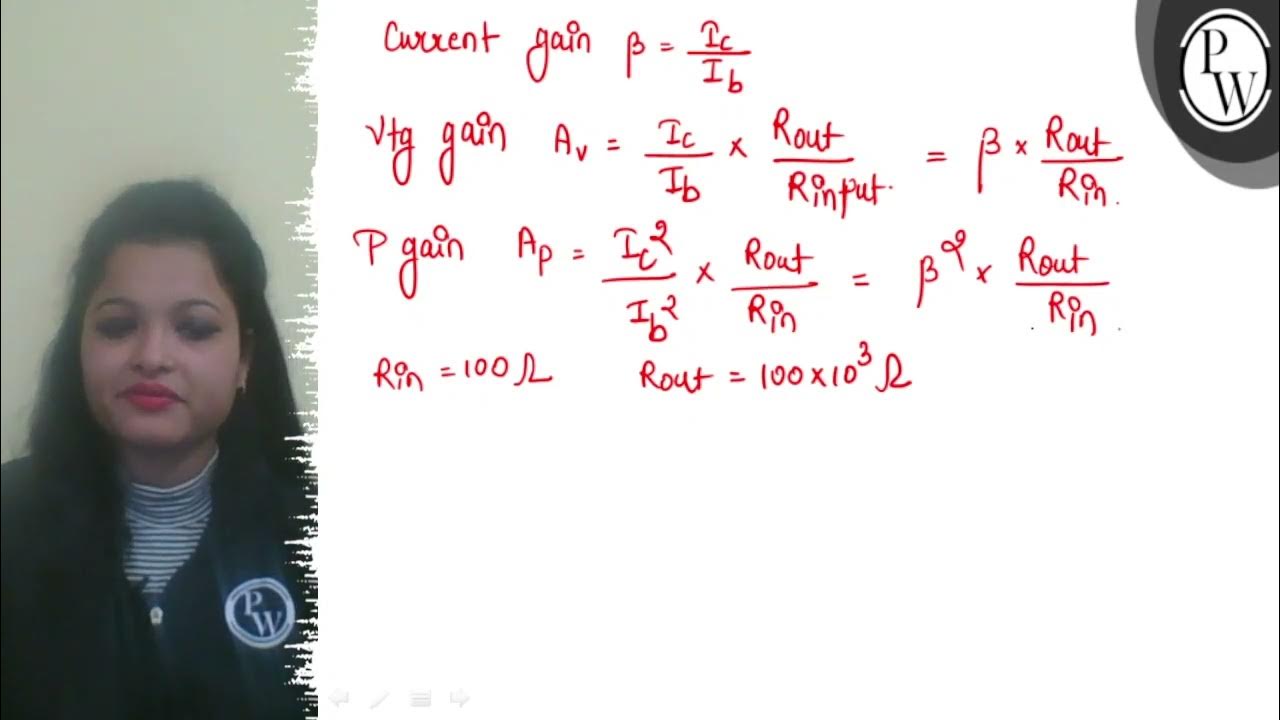 Current gain β = Ic/Ib
Vtg gain Av = Ic/Ib × Rout/Rinput. = β × Rout/Rin.
P gain Ap = Ic²/Ib² × Rout/Rin = β² × Rout/Rin.
Rin = 100 Ω Rout = 100×10³ Ω
PW
PW